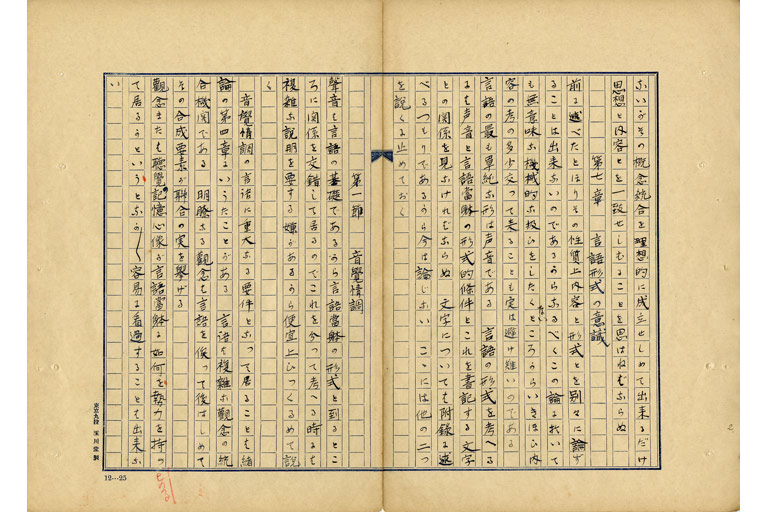 ないがその概念統合を理想的に成立せしめて出来るだけ
思想と内容とを一致せしむることを思はねばならぬ
第七章 言語形式の意識
前に述べたとほりその性質上内容と形式とを別々に論ず
ることは出来ないのであるからなるべくこの論に於いて
も無意味な機械的な扱ひをしたくないところからいきほひ内
容の考の多少交つて来ることも実は避け難いのである
言語の最も単純な形は声音である 言語の形式を考へる
にも声音と言語當躰の形式的條件とこれを書記する文字
との関係を見なければならぬ 文字については附録に述
べるつもりであるから今は論じない こゝには他の二つ
を説くに止めておく
第一節 音覺情調
聲音は言語の基礎であるから言語當躰の形式と到るとこ
ろに関係を交錯して居るのでこれを分つて考へる時にも
複雑な説明を要する嫌があるから便宜上ひつくるめて説
く
音覺情調の言語に重大なる要件となつて居ることは緒
論の第四章にいうたことがある 言語は複雑な觀念の統
合機関である 明瞭なる觀念も言語を俟つて後はじめて
その合成要素が聯合の実を擧げる
觀念または聽覺記憶心像が言語當躰に如何な勢力を持つ
て居るかといふとなかなか容易に看過することも出来な
い
東京九段 玉川堂製
12…25